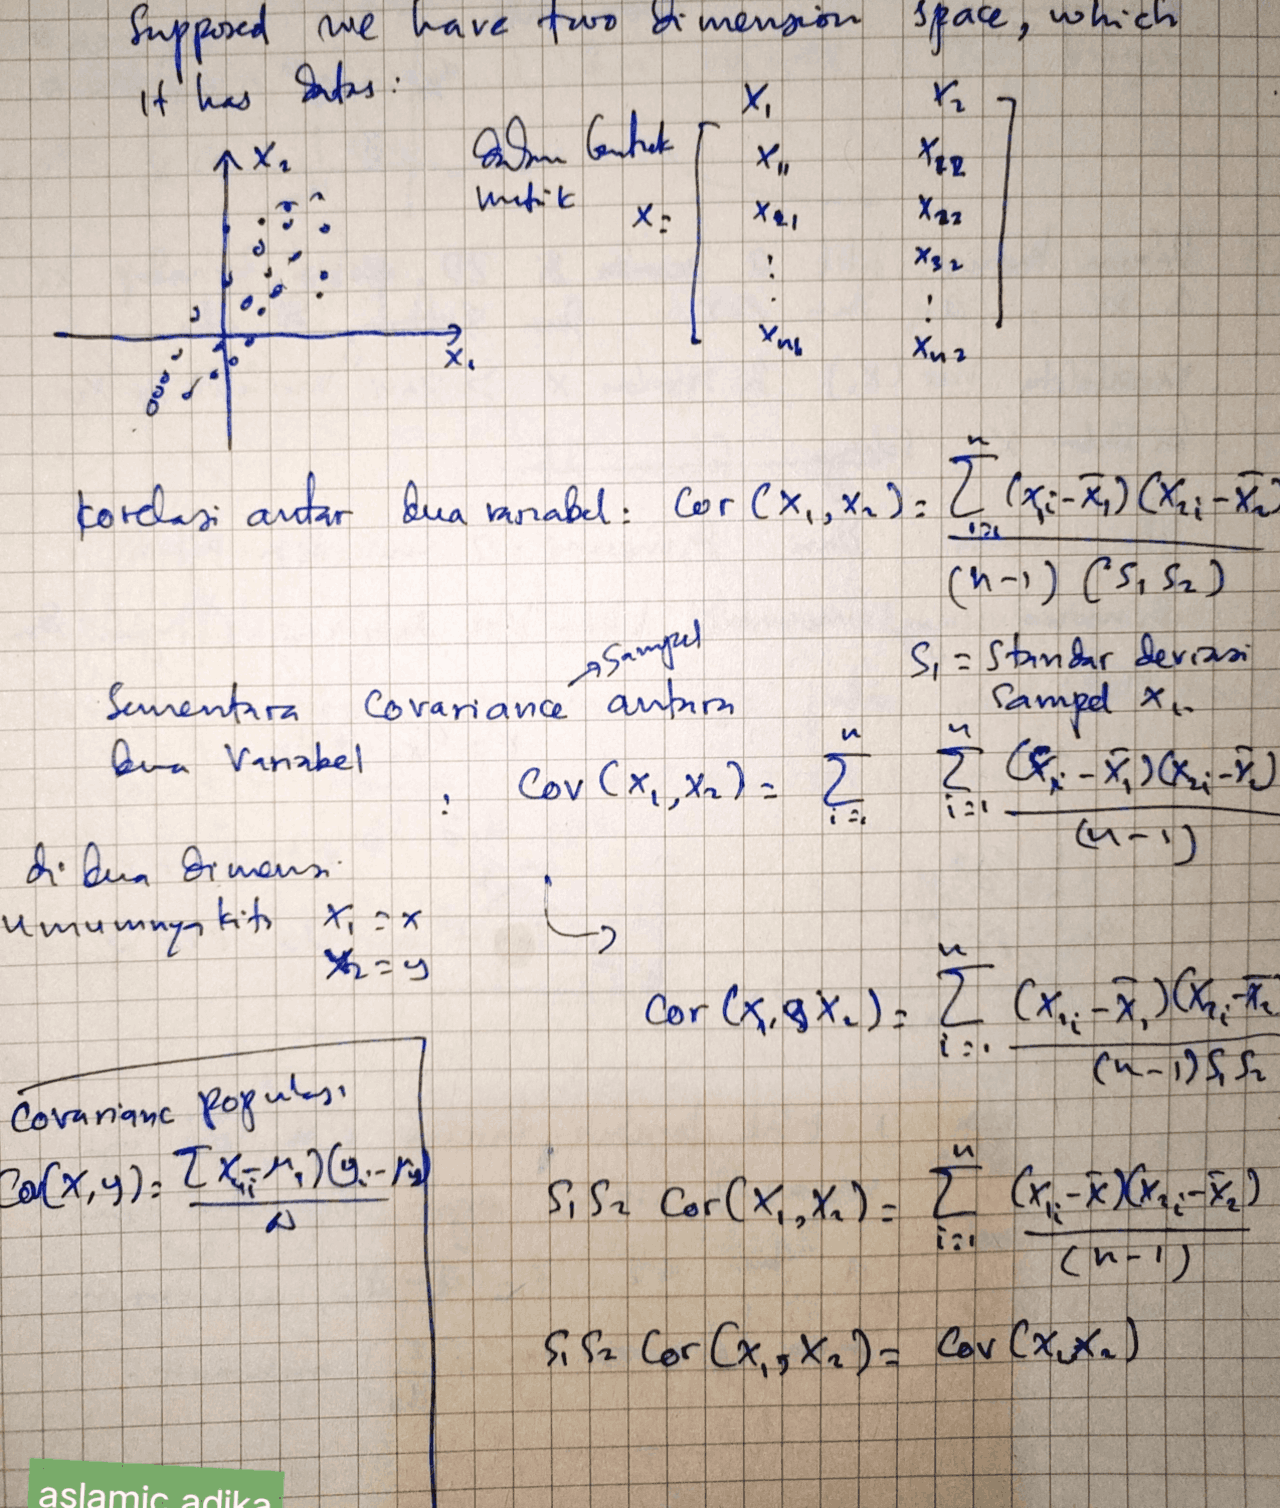 Supposed we have two dimension space, which
it has datas:
X₂
X₁
dalam bentuk
matrik
X =
X₁ X₂
X₁₁ X₂₂
X₂₁ X₂₂
⋮ X₃₂
⋮
Xₙ₁ Xₙ₂
korelasi antar dua variabel: Cor (X₁, X₂) = Σⁿᵢ₌₁ (x₁ᵢ - x̄₁)(x₂ᵢ - x̄₂)
(n-1) (S₁ S₂)
S₁ = Standar deviasi
sampel x₁.
Sementara covariance antara
→ Sampel
dua variabel :
Cov (x₁, x₂) = Σⁿᵢ₌₁ Σⁿᵢ₌₁ (x₁ᵢ - x̄₁)(x₂ᵢ - x̄₂)
(n-1)
di dua dimensi
umumnya kita x₁ = x
x₂ = y
Cor (x₁, x₂) = Σⁿᵢ₌₁ (x₁ᵢ - x̄₁)(x₂ᵢ - x̄₂
(n-1) S₁ S₂
Covarianc populasi
Co(x,y) = Σ x₁ᵢ - μ₁)(yᵢ - μy)
N
S₁ S₂ Cor (X₁, X₂) = Σⁿᵢ₌₁ (x₁ᵢ - x̄)(x₂ᵢ - x̄₂)
(n-1)
S₁ S₂ Cor (X₁, X₂) = Cov (X₁, X₂)
aslamic adika